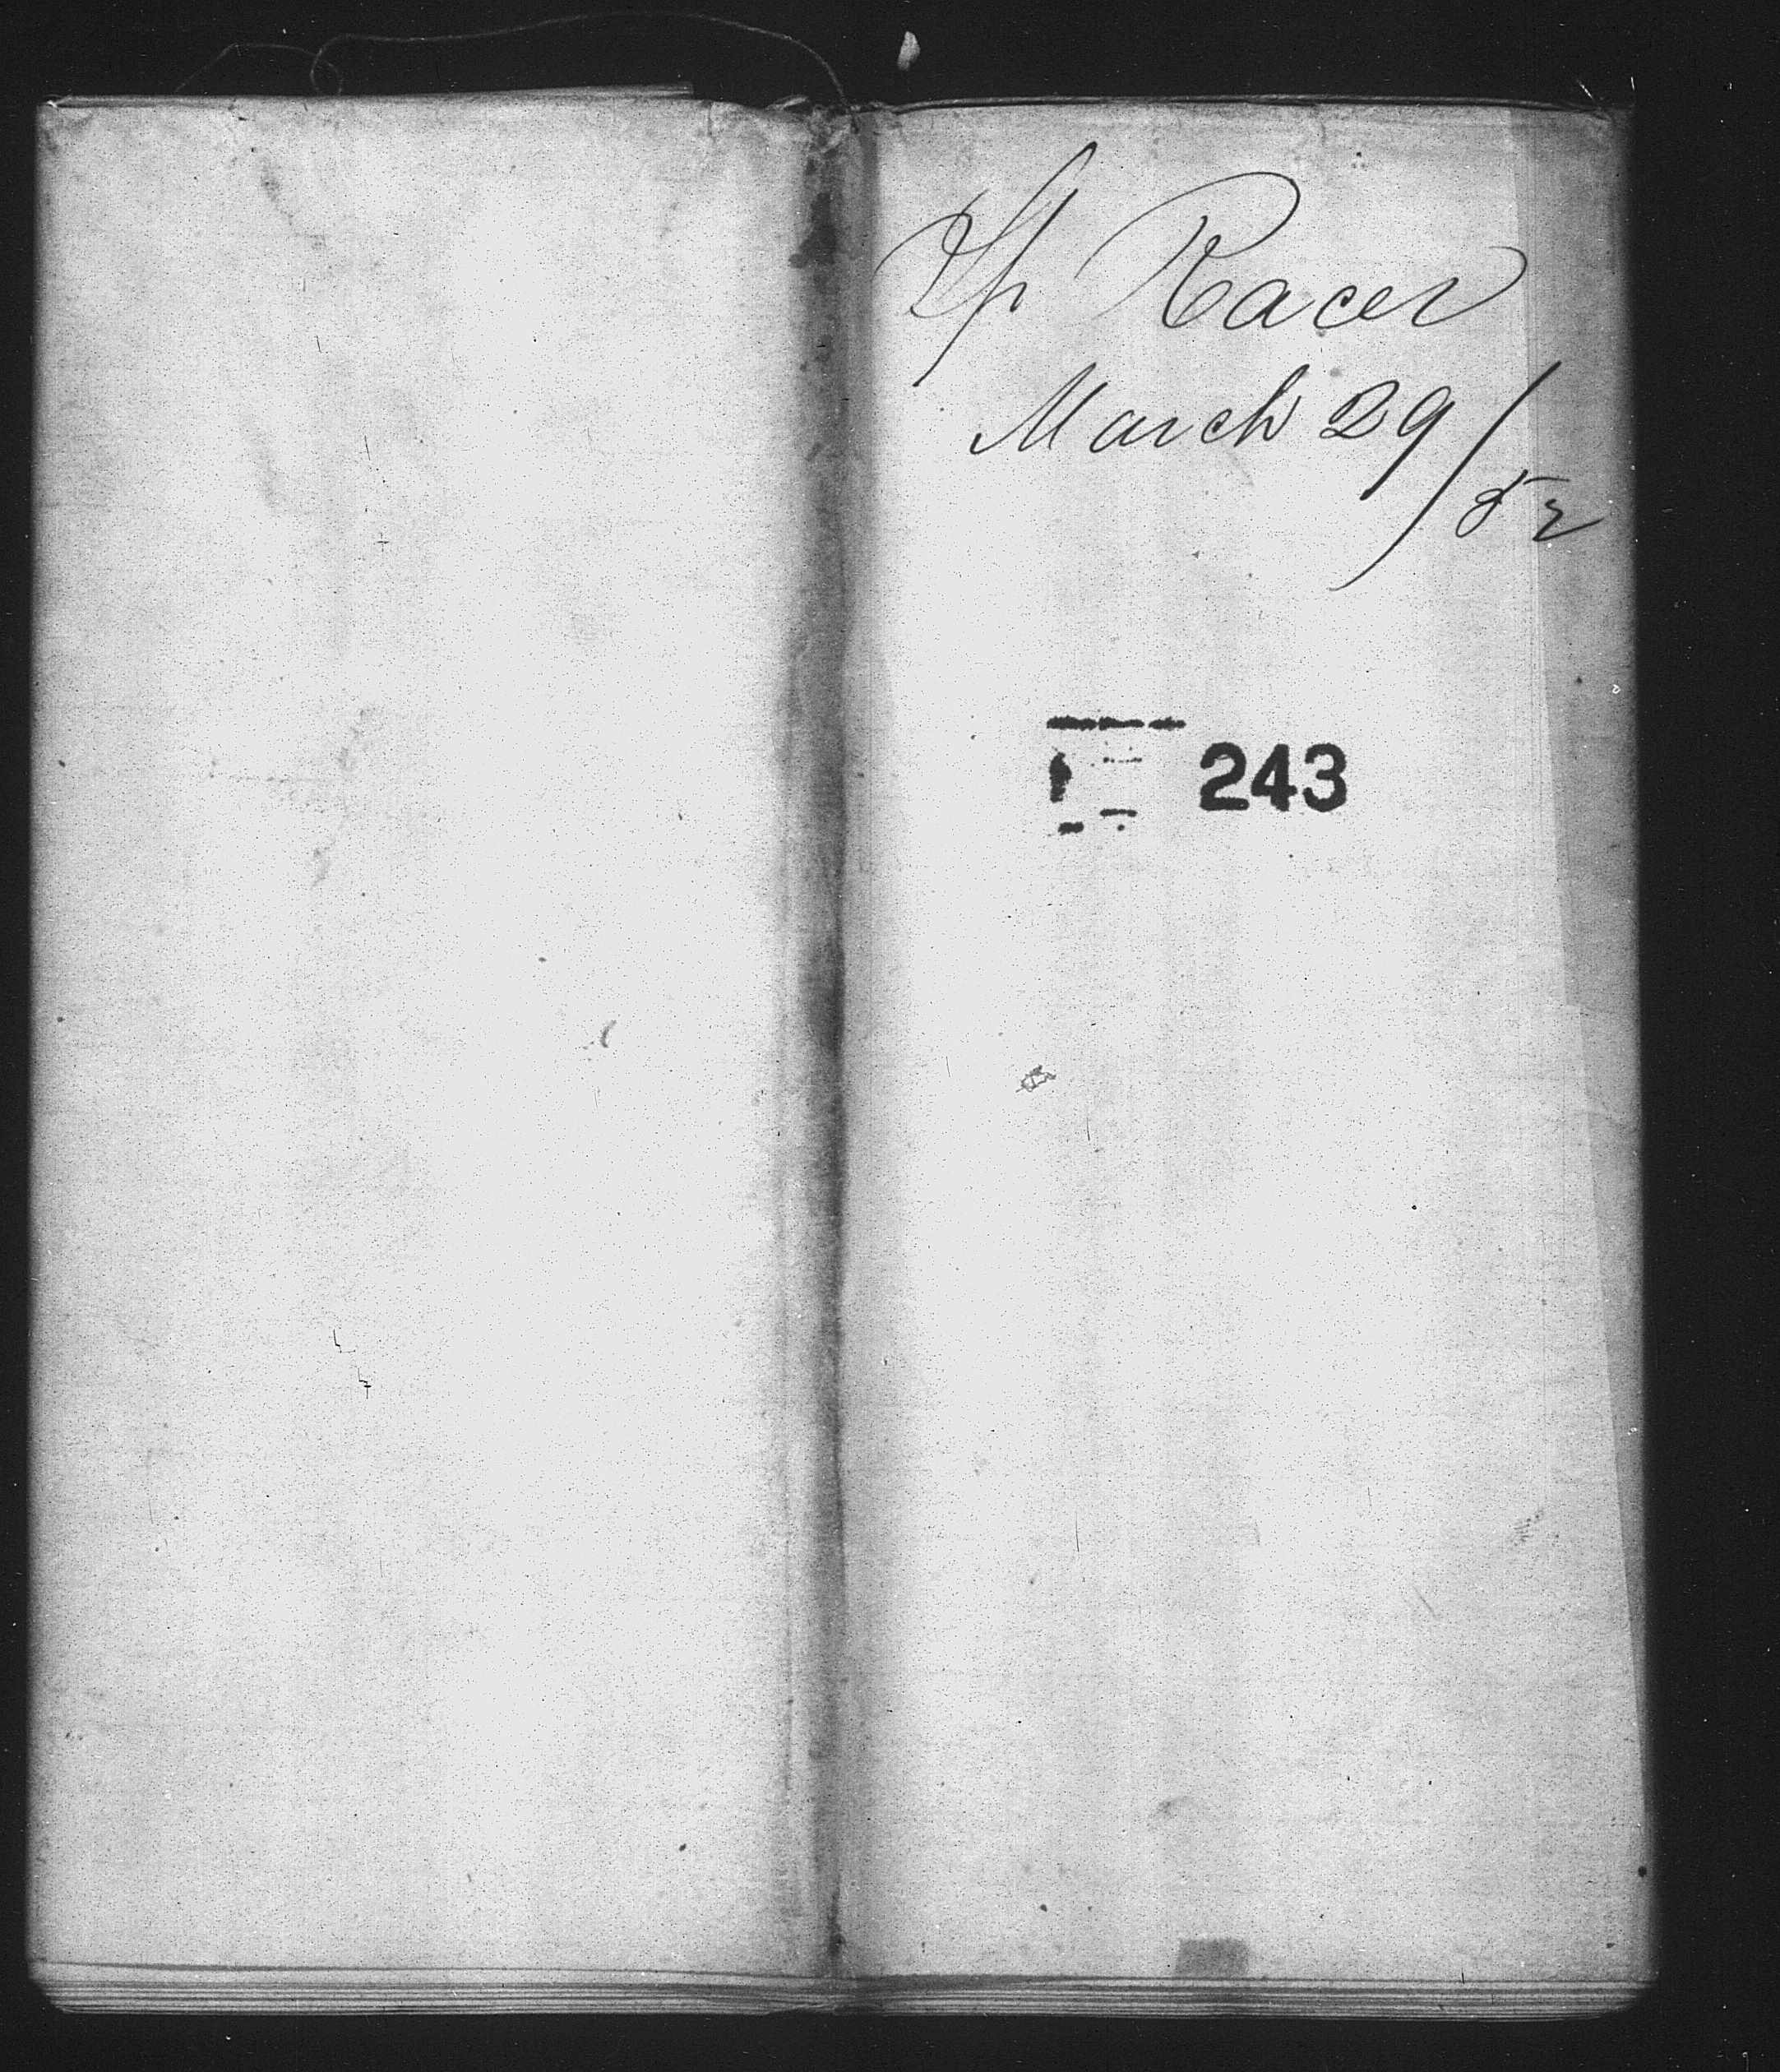 Sp Racer
March 29/52
243